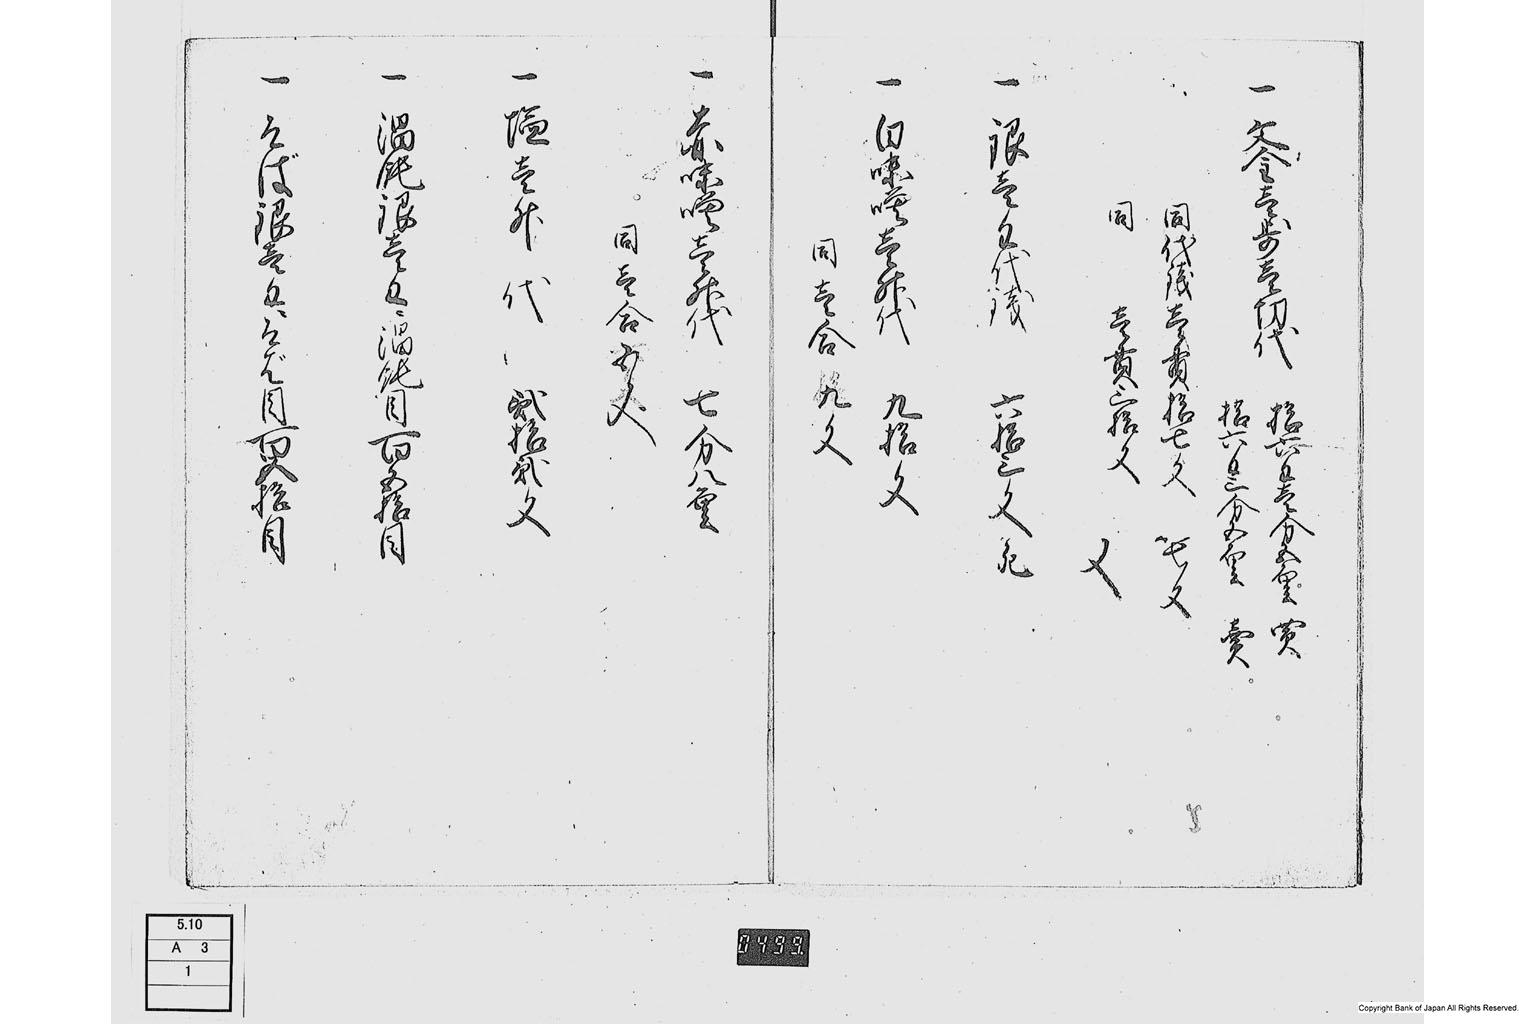 一 文金壱歩壱切代
拾六匁壱分五厘 買
拾六匁三分五厘 賣
同代銭壱貫拾七文
七文
同 壱貫三拾文
文
一 銀壱匁代銭 六拾三文
一 白味噌壱升代 九拾文
同壱合 九文
一 赤味噌壱升代 七分八厘
同壱合 五文
一 塩壱升 代 弐拾弐文
一 温飩銀壱匁ニ温飩目百五拾目
一 そば銀壱匁ニそば目百八拾目
5.10
A 3
1
0499
Copyright Bank of Japan All Rights Reserved.